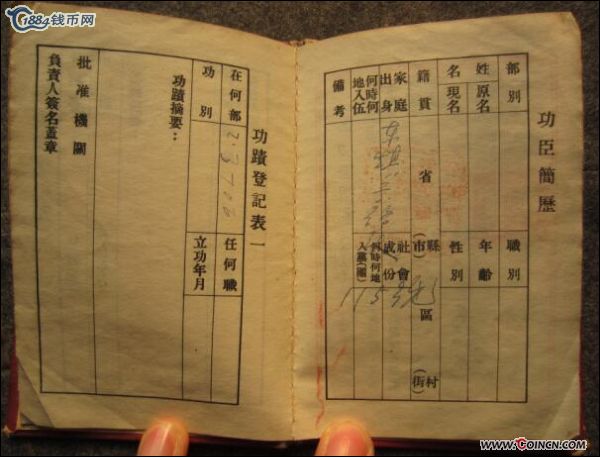 1884钱币网
功臣簡歷
部別
職別
姓名
原名
現名
年齡
性別
籍貫
省
縣(市)
區
村(街)
家庭出身
社會成份
何時何地入伍
何時何地入黨(團)
備考
115號
功蹟登記表一
在何部
任何職
功別
立功年月
功蹟摘要：
批准機關
負責人簽名蓋章
www.COINCN.com